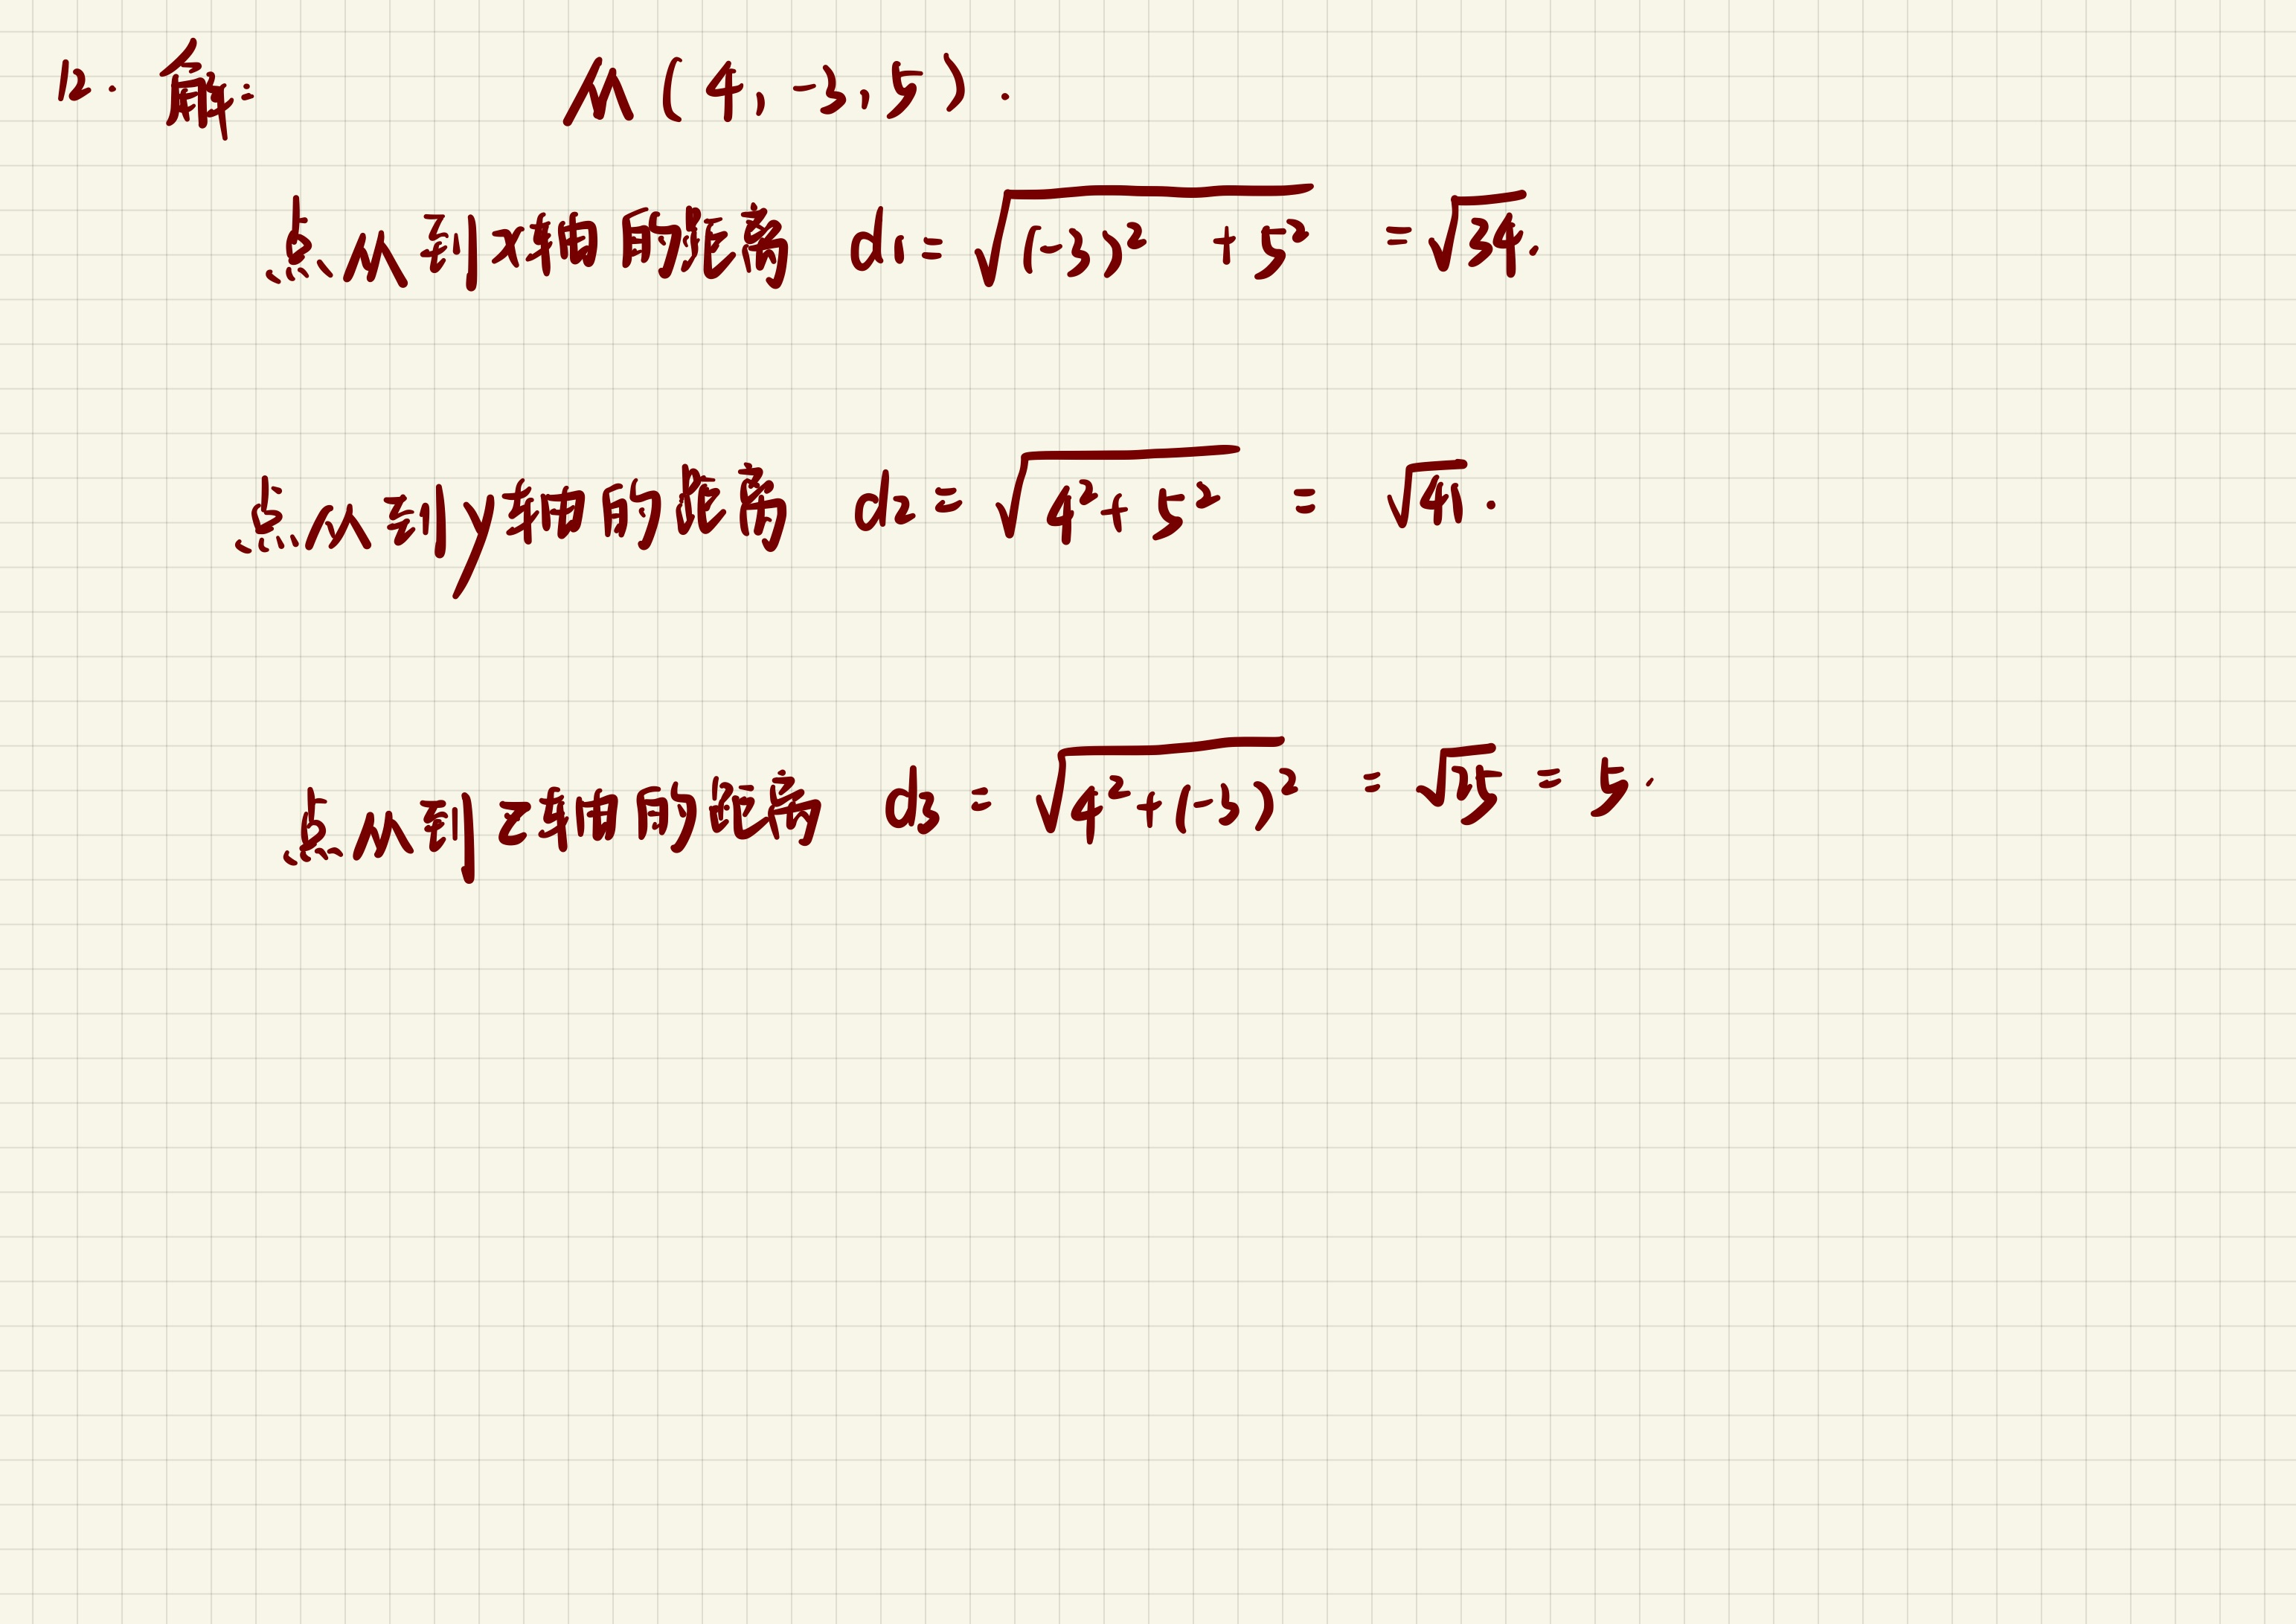 12. 解: M(4, -3, 5).
点M到x轴的距离 d₁ = √((-3)² + 5²) = √34.
点M到y轴的距离 d₂ = √(4² + 5²) = √41.
点M到z轴的距离 d₃ = √(4² + (-3)²) = √25 = 5.